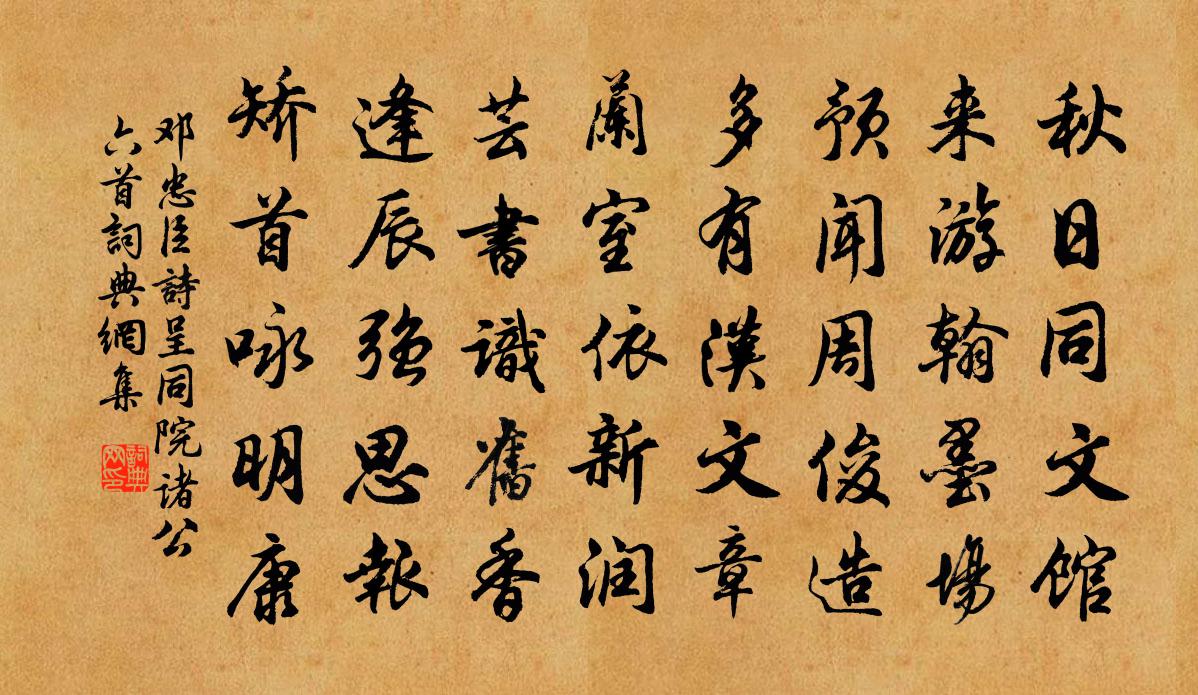 秋日同文馆
来游翰墨場
预闻周俊造
多有漢文章
蘭室依新润
芸書識舊香
逢辰强思報
矫首咏明康
邓忠臣詩呈同院诸公
六首詞典網集
詞典网印